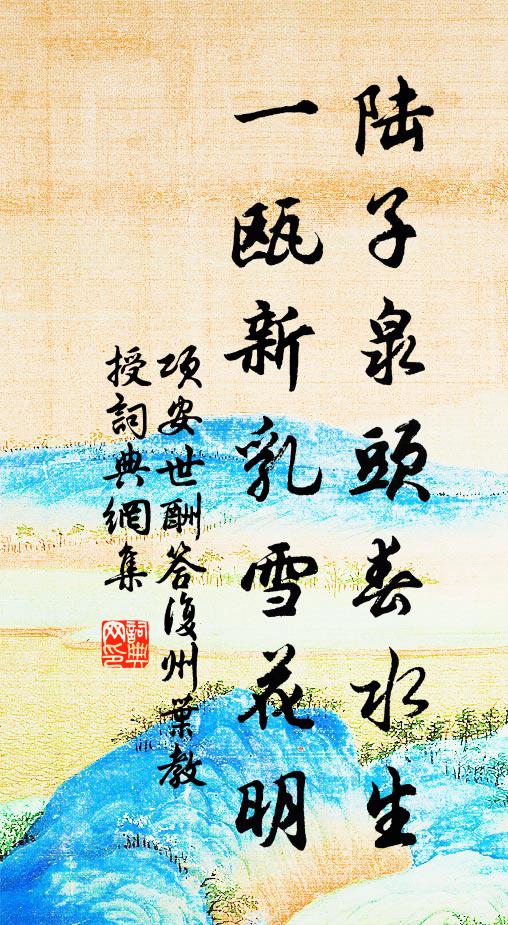 陆子泉頭春水生
一甌新乳雪花明
项安世酬答復州葉教
授詞典網集
詞典
网印